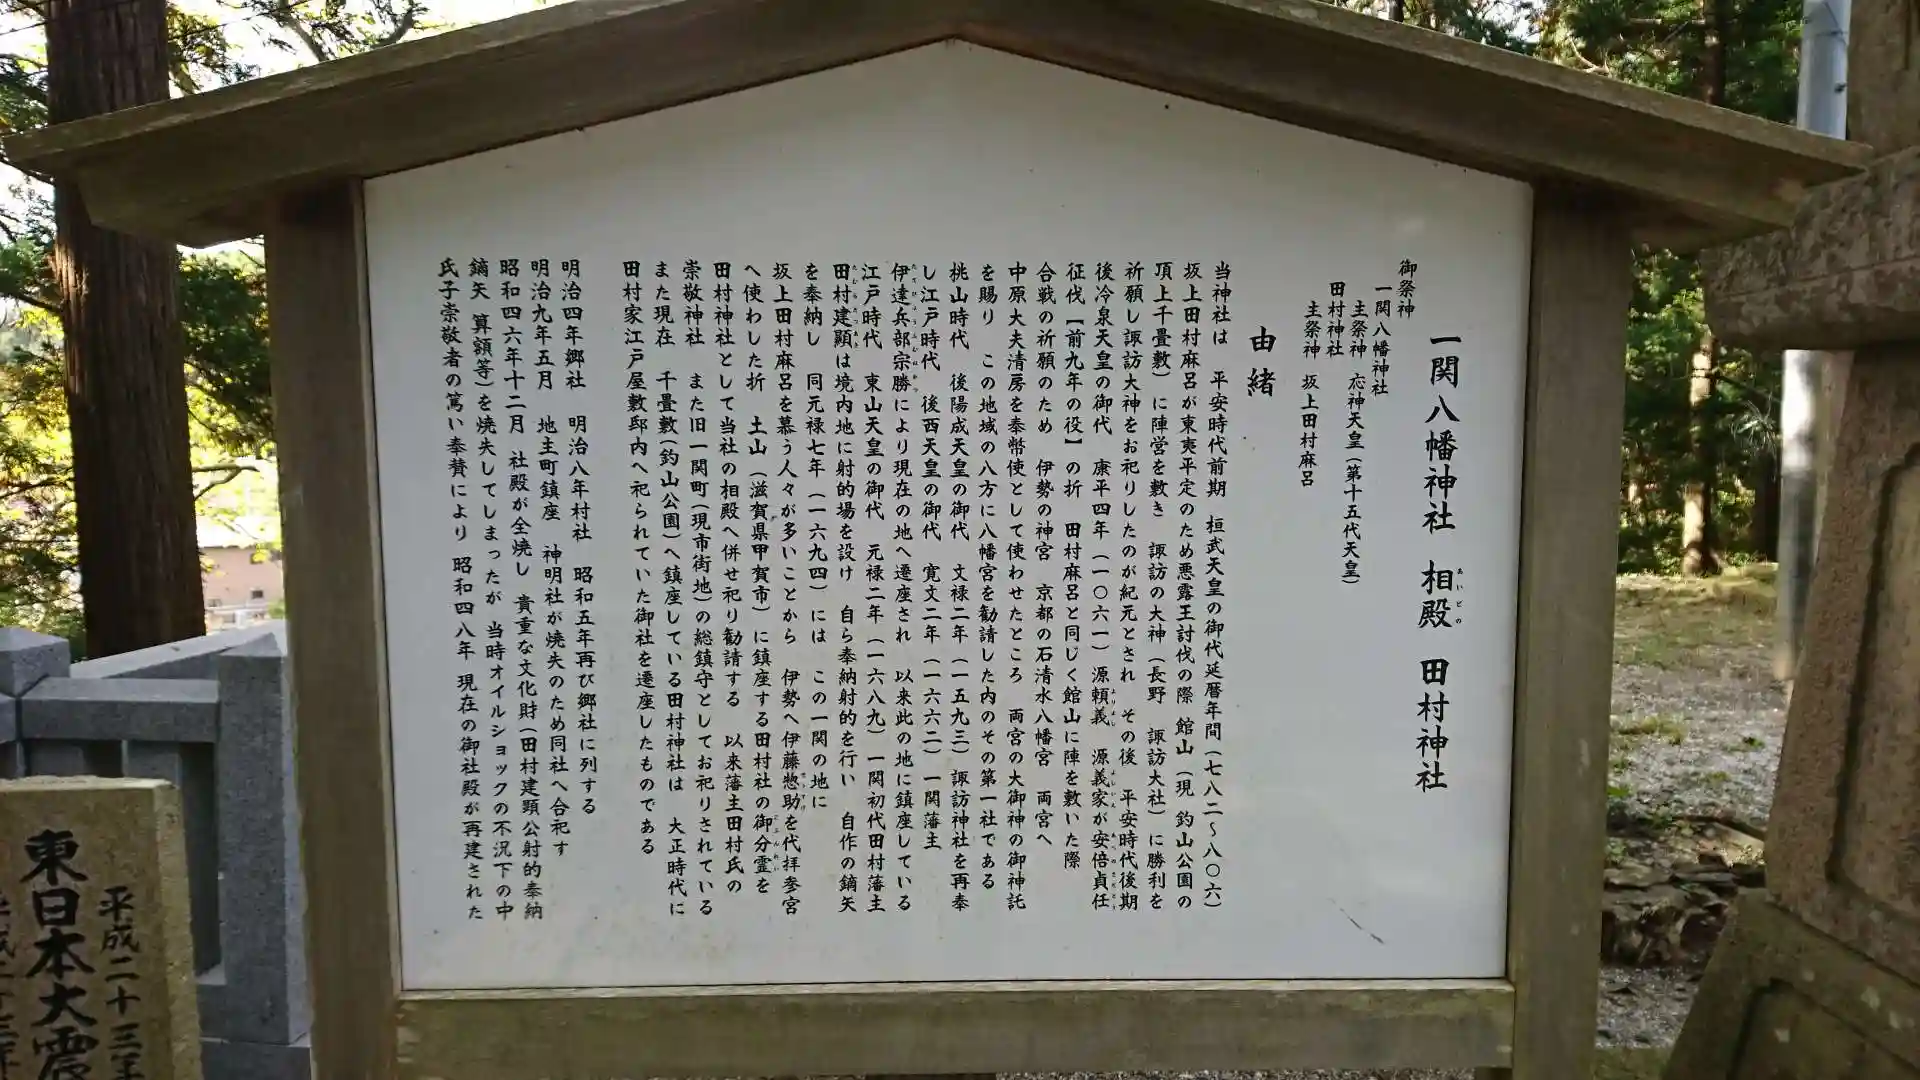 一関八幡神社 相殿 田村神社
あいどの
御祭神
一関八幡神社
主祭神 応神天皇(第十五代天皇)
田村神社
主祭神 坂上田村麻呂
由緒
当神社は 平安時代前期 桓武天皇の御代延暦年間(七八二〜八〇六)
坂上田村麻呂が東夷平定のため悪露王討伐の際 館山(現 釣山公園の
頂上千畳敷)に陣営を敷き 諏訪の大神(長野 諏訪大社)に勝利を
祈願し諏訪大神をお祀りしたのが紀元とされ その後 平安時代後期
後冷泉天皇の御代 康平四年(一〇六一)源頼義 源義家が安倍貞任
征伐【前九年の役】の折 田村麻呂と同じく館山に陣を敷いた際
合戦の祈願のため 伊勢の神宮 京都の石清水八幡宮 両宮へ
中原大夫清房を奉幣使として使わせたところ 両宮の大御神の御神託
を賜り この地域の八方に八幡宮を勧請した内のその第一社である
桃山時代 後陽成天皇の御代 文禄二年(一五九三)諏訪神社を再奉
し江戸時代 後西天皇の御代 寛文二年(一六六二)一関藩主
伊達兵部宗勝により現在の地へ遷座され 以来此の地に鎮座している
江戸時代 東山天皇の御代 元禄二年(一六八九)一関初代田村藩主
田村建顕は境内地に射的場を設け 自ら奉納射的を行い 自作の鏑矢
を奉納し 同元禄七年(一六九四)には この一関の地に
坂上田村麻呂を慕う人々が多いことから 伊勢へ伊藤惣助を代拝参宮
へ使わした折 土山(滋賀県甲賀市)に鎮座する田村社の御分霊を
田村神社として当社の相殿へ併せ祀り勧請する 以来藩主田村氏の
崇敬神社 また旧一関町(現市街地)の総鎮守としてお祀りされている
また現在 千畳敷(釣山公園)へ鎮座している田村神社は 大正時代に
田村家江戸屋敷邸内へ祀られていた御社を遷座したものである
明治四年郷社 明治八年村社 昭和五年再び郷社に列する
明治九年五月 地主町鎮座 神明社が焼失のため同社へ合祀す
昭和四六年十二月 社殿が全焼し 貴重な文化財(田村建顕公射的奉納
鏑矢 算額等)を焼失してしまったが 当時オイルショックの不況下の中
氏子崇敬者の篤い奉賛により 昭和四八年 現在の御社殿が再建された
平成二十三年
東日本大震